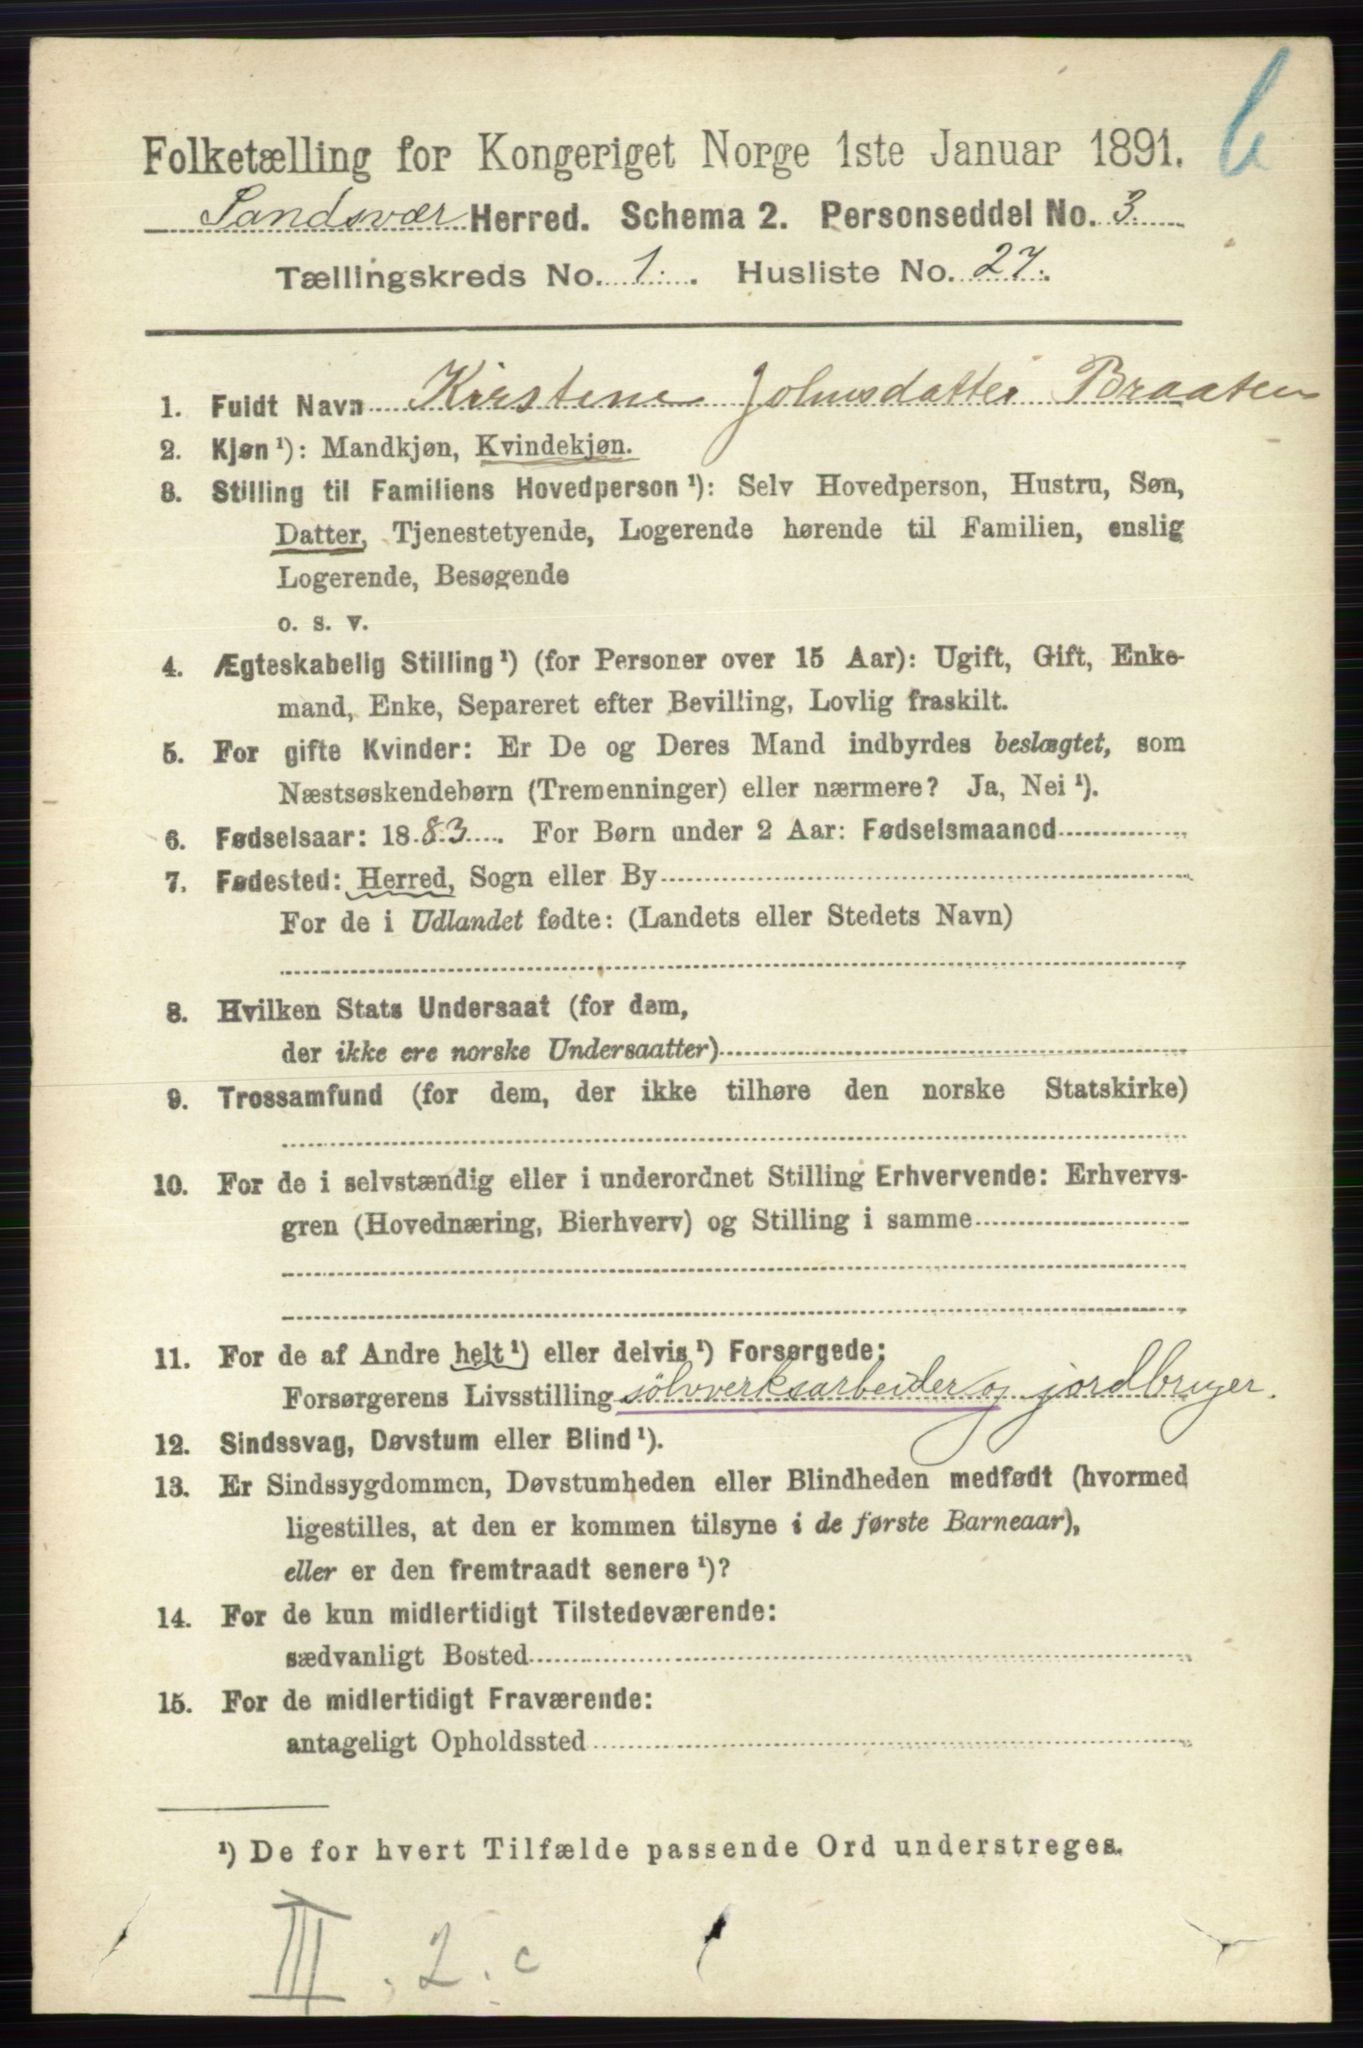 b
Folketælling for Kongeriget Norge 1ste Januar 1891.
Sandsvær Herred. Schema 2. Personseddel No. 3.
Tællingskreds No. 1. Husliste No. 27.
1. Fuldt Navn Kirstine Johnsdatter Braaten
2. Kjøn ¹): Mandkjøn, Kvindekjøn.
3. Stilling til Familiens Hovedperson ¹): Selv Hovedperson, Hustru, Søn,
Datter, Tjenestetyende, Logerende hørende til Familien, enslig
Logerende, Besøgende
o. s. v.
4. Ægteskabelig Stilling ¹) (for Personer over 15 Aar): Ugift, Gift, Enke-
mand, Enke, Separeret efter Bevilling, Lovlig fraskilt.
5. For gifte Kvinder: Er De og Deres Mand indbyrdes beslægtet, som
Næstsøskendebørn (Tremenninger) eller nærmere? Ja, Nei ¹).
6. Fødselsaar: 1883. For Børn under 2 Aar: Fødselsmaaned
7. Fødested: Herred, Sogn eller By
For de i Udlandet fødte: (Landets eller Stedets Navn)
8. Hvilken Stats Undersaat (for dem,
der ikke ere norske Undersaatter)
9. Trossamfund (for dem, der ikke tilhøre den norske Statskirke)
10. For de i selvstændig eller i underordnet Stilling Erhvervende: Erhvervs-
gren (Hovednæring, Bierhverv) og Stilling i samme
11. For de af Andre helt ¹) eller delvis ¹) Forsørgede:
Forsørgerens Livsstilling sölvverksarbeider og jordbruger.
12. Sindssvag, Døvstum eller Blind ¹).
13. Er Sindssygdommen, Døvstumheden eller Blindheden medfødt (hvormed
ligestilles, at den er kommen tilsyne i de første Barneaar),
eller er den fremtraadt senere ¹)?
14. For de kun midlertidigt Tilstedeværende:
sædvanligt Bosted
15. For de midlertidigt Fraværende:
antageligt Opholdssted
¹) De for hvert Tilfælde passende Ord understreges.
III. 2. c